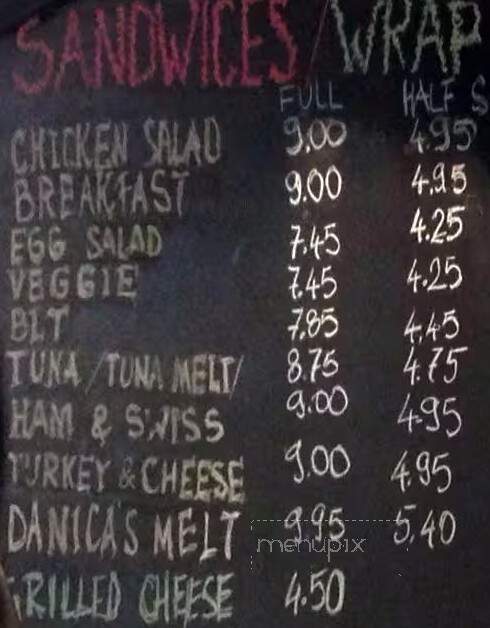 SANDWICES / WRAP
FULL HALF S
CHICKEN SALAD 9.00 4.95
BREAKFAST 9.00 4.95
EGG SALAD 7.45 4.25
VEGGIE 7.45 4.25
BLT 7.85 4.45
TUNA /TUNA MELT/ 8.75 4.75
HAM & SWISS 9.00 4.95
TURKEY & CHEESE 9.00 4.95
DANICA'S MELT 9.95 5.40
menupix
GRILLED CHEESE 4.50